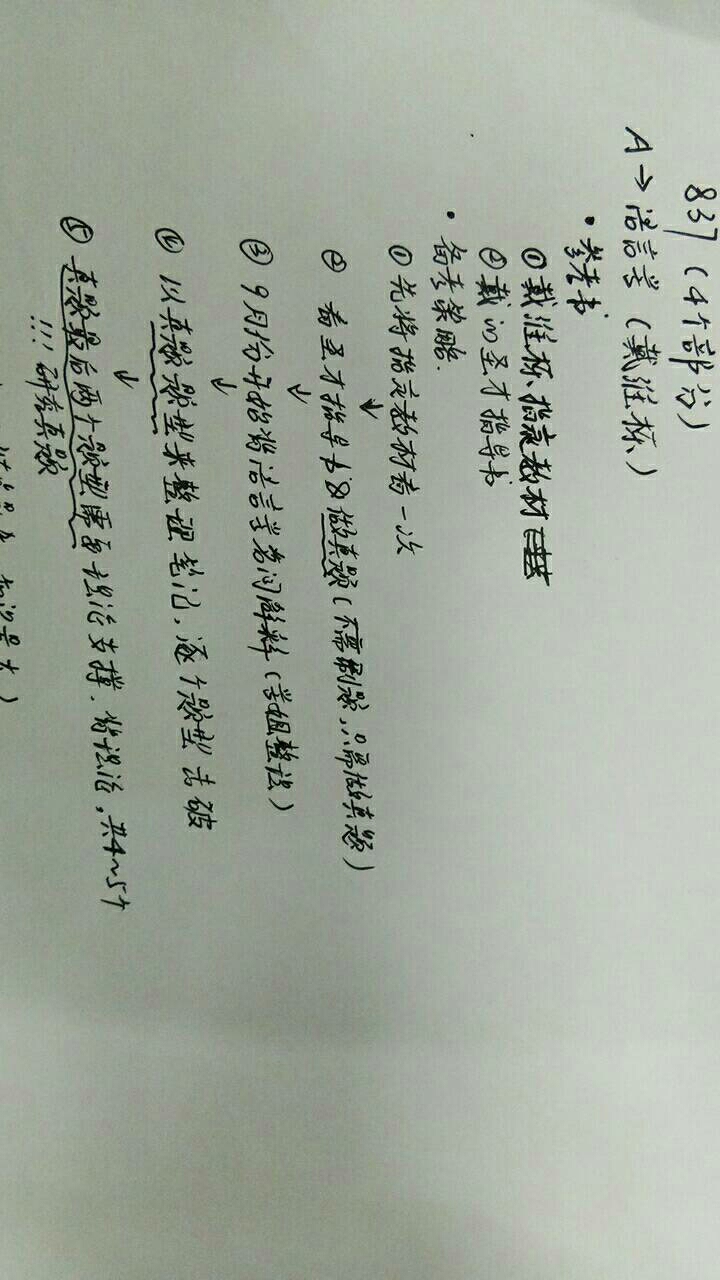 837 (4个部分)
A→语言学 (戴炜栋)
• 参考书
① 戴炜栋指定教材
② 戴的圣才指导书
• 备考策略.
① 先将指定教材看一次
↓
② 看圣才指导书&做真题 (不需刷题,只需做真题)
↓
③ 9月份开始背语言学名词解释 (学姐整理)
↓
④ 以真题题型来整理笔记,逐个题型击破
↓
⑤ 真题最后两个题型需要理论支撑.背理论,共4~5个
!!! 研究真题